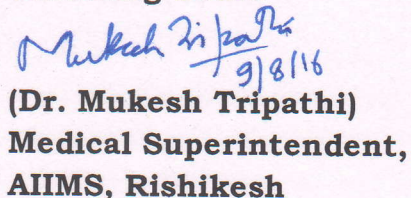 Mukesh Tripathi
9/8/16
(Dr. Mukesh Tripathi)
Medical Superintendent,
AIIMS, Rishikesh